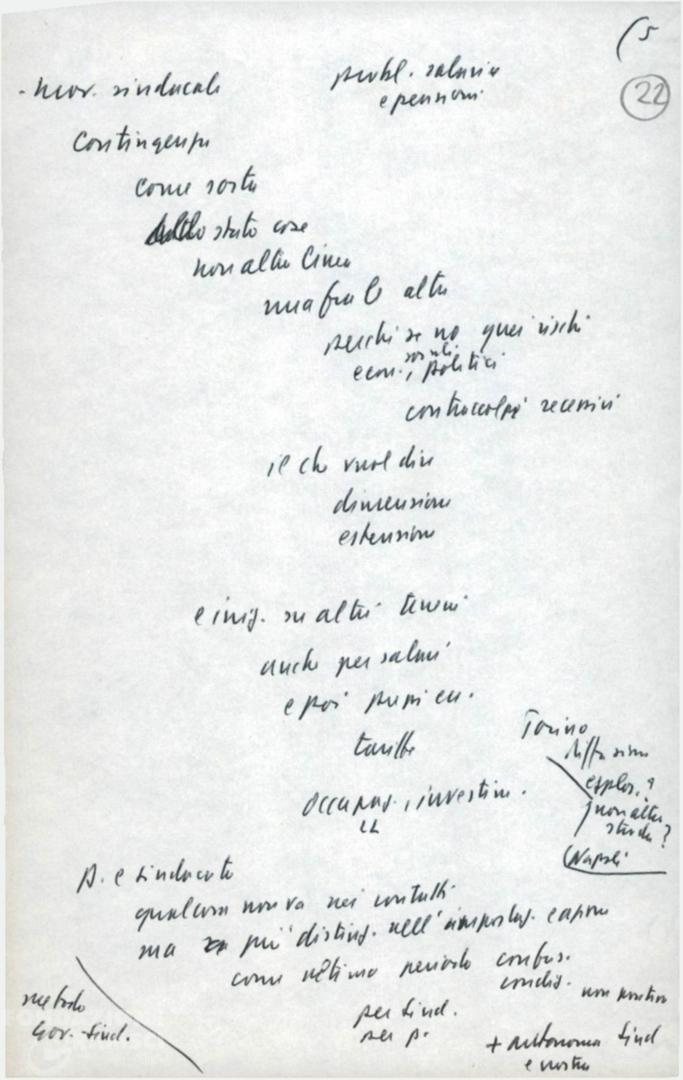 (5
22
- mov. sindacali
probl. salario
e pensioni
Contingenza
come sorta
stato cose
non altra linea
ma fra le altre
perché se no quei rischi
econ., sociali, politici
contraccolpi recessivi
il che vuol dire
dimensione
estensione
e su altri terreni
anche per salari
e poi prezzi ecc.
tariffe
occupaz., investim.
Torino
esplos. ?
non altra
strada ?
(Napoli
P. e sindacato
qualcosa non va nei contatti
ma più disting. nell'impostaz. e
come ultimo periodo confus.
condiz. non
per sind.
per p.
+ autonomia sind
e nostra
metodo
Gov. sind.